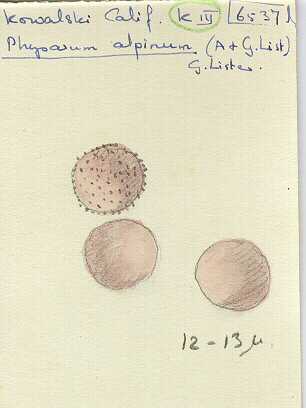 Kowalski Calif. K III 6537
Physarum alpinum (A & G. List)
G. Lister.
12 - 13 µ.